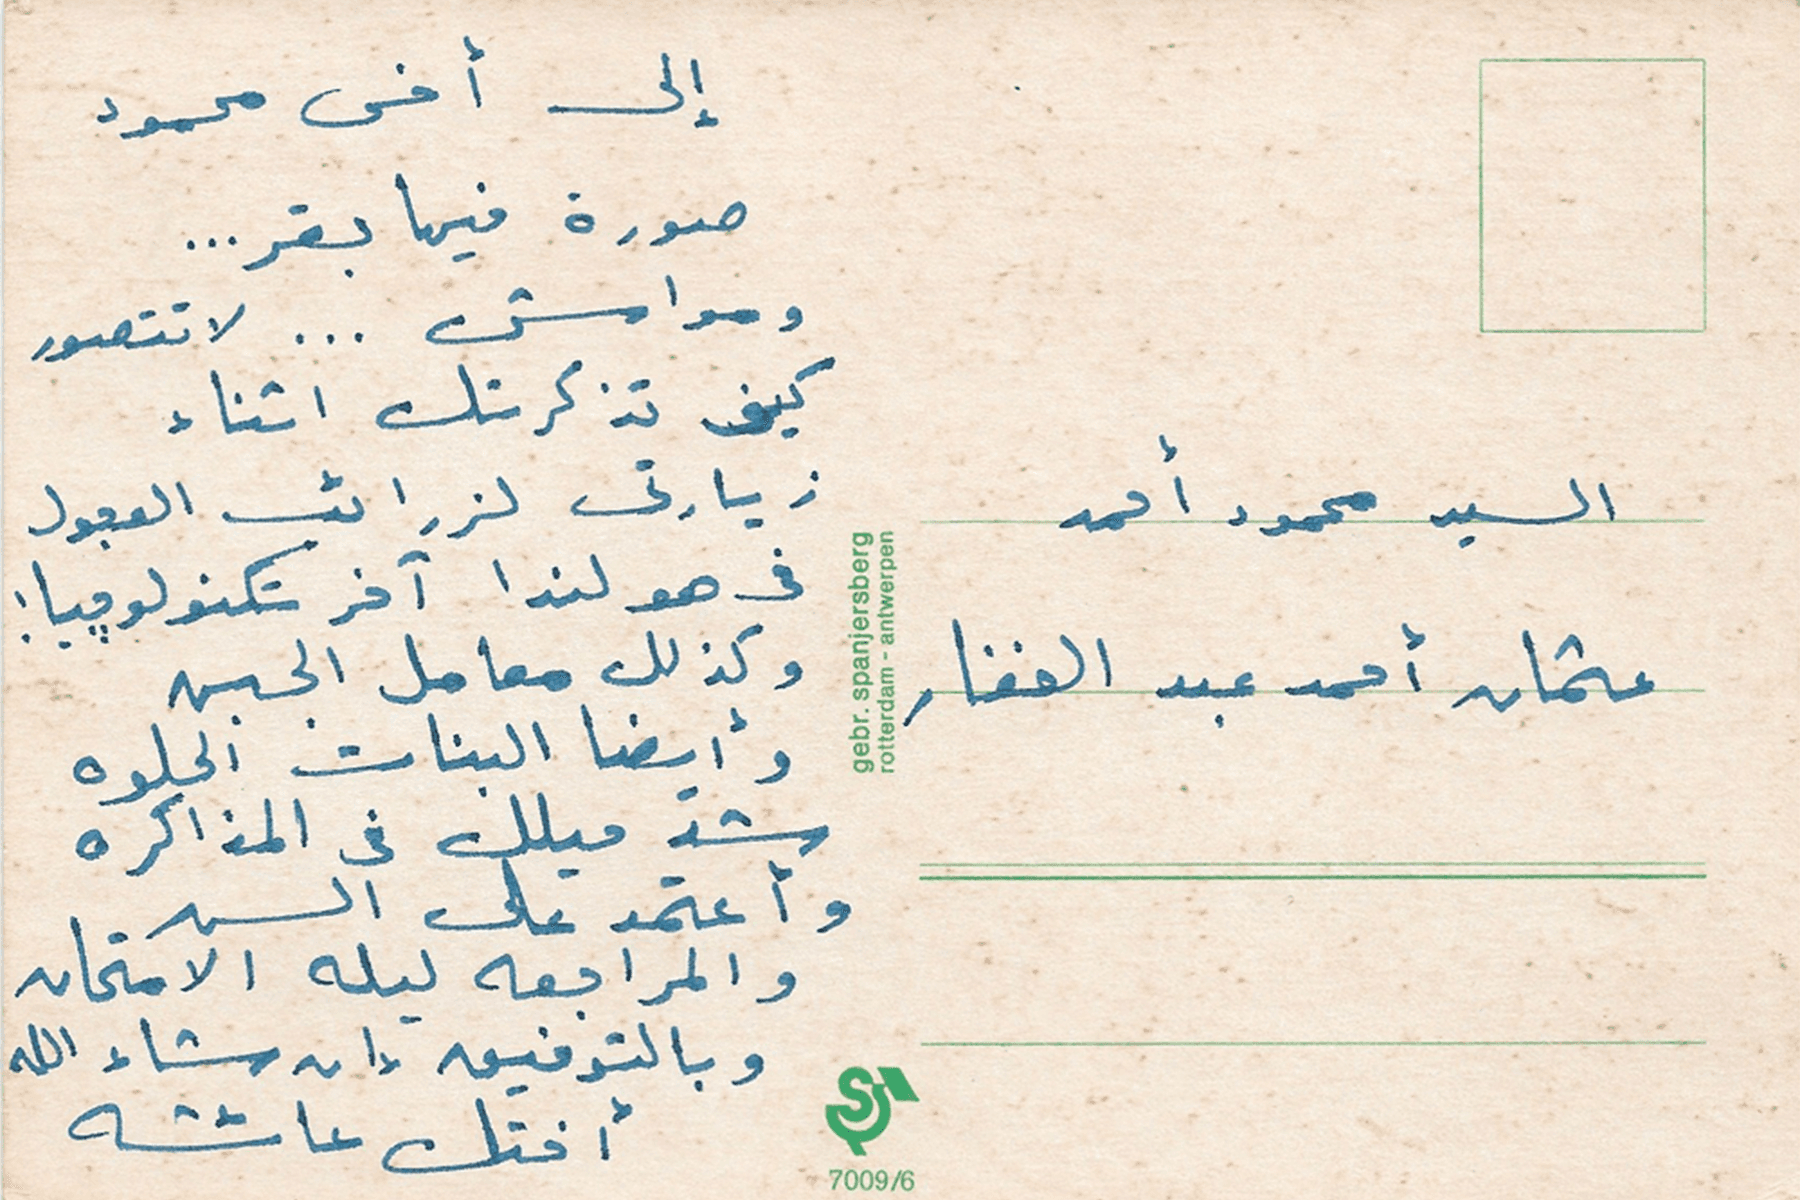 إلى أخى محمود
صورة فيها بقر...
ومواشى ... لا تتصور
كيف تذكرتك اثناء
زيارتى لزرائب العجول
فى هولندا آخر تكنولوچيا!
وكذلك معامل الجبن
وأيضا البنات الحلوه
شد حيلك فى المذاكره
وأعتمد على
والمراجعه ليله الامتحان
وبالتوفيق إن شاء الله
أختك عائشه
السيد محمود أحمد
عثمان أحمد عبد الغفار
gebr. spanjersberg
rotterdam - antwerpen
7009/6